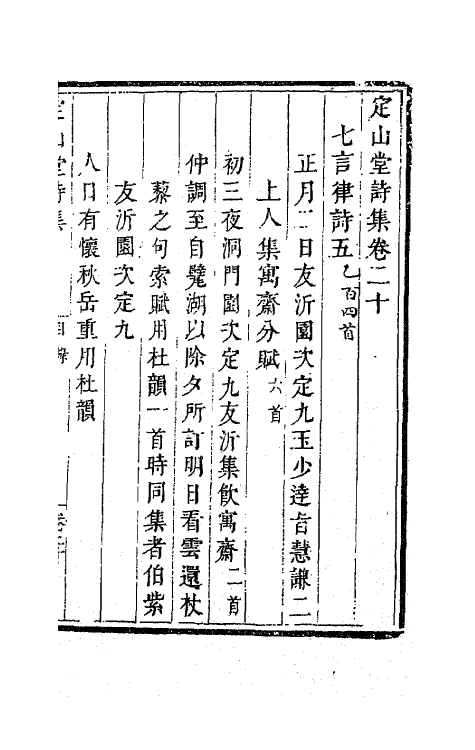 定山堂詩集卷二十
七言律詩五 乙百四首
正月二日友沂園次定九玉少達旨慧謙二
上人集寓齋分賦 六首
初三夜洞門園次定九友沂集飲寓齋 二首
仲調至自髦湖以除夕所訂明日看雲還杖
藜之句索賦用杜韻一首時同集者伯紫
友沂園次定九
人日有懷秋岳重用杜韻
定山堂詩集 目錄 卷二十